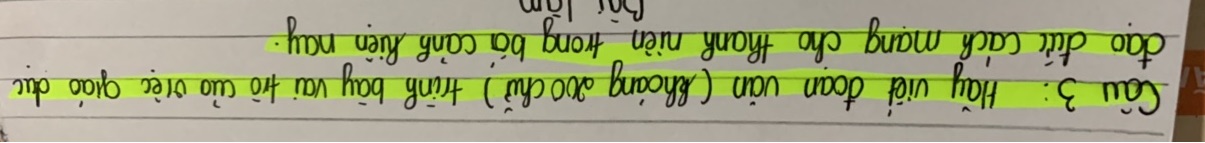 Câu 3: Hãy viết đoạn văn (khoảng 200 chữ) trình bày vai trò của việc giáo dục
đạo đức cách mạng cho thanh niên trong bối cảnh hiện nay.
Bài làm